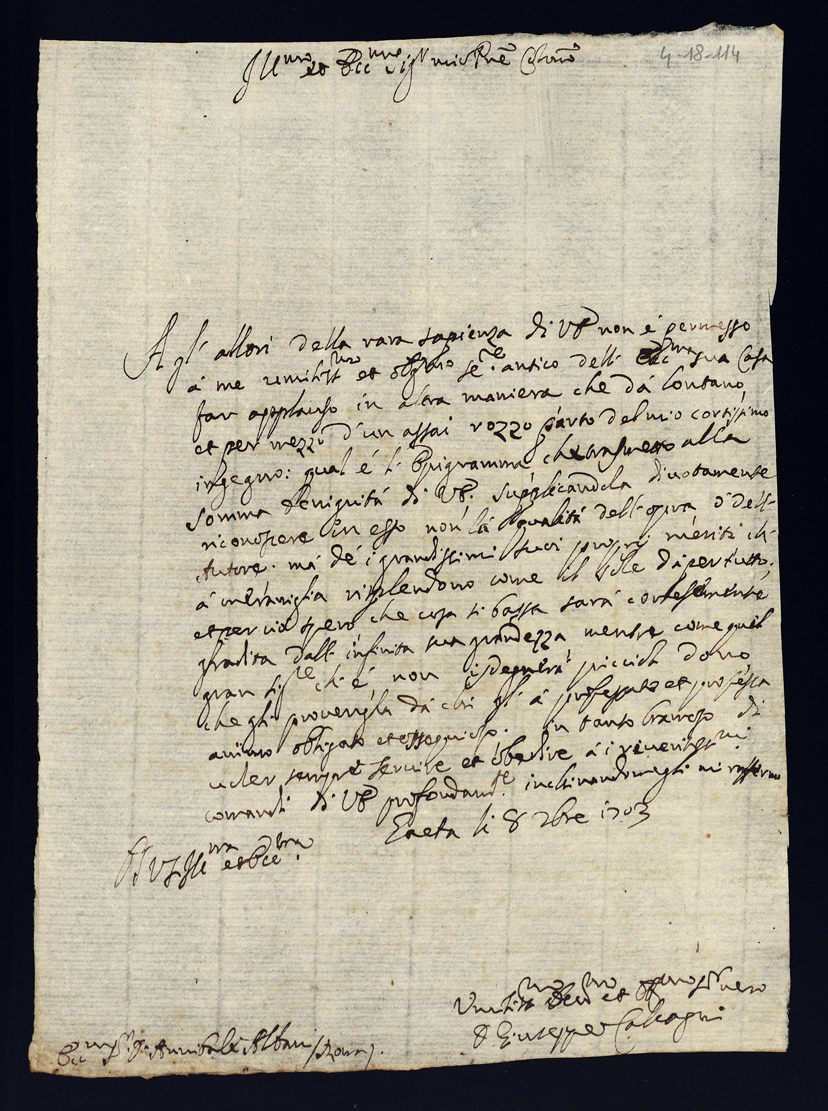 Ill.mo et Ecc.mo Sig.r mio P.rone Col.mo
4-18-114
A gl' allori della rara sapienza di VE non é permesso
á me umiliss.mo et oblig.mo se.re antico dell' Ecc.ma sua Casa
far applauso in altra maniera che dá lontano
et per mezzo d'un assai rozzo parto del mio cortissimo
ingegno: qual é l'Epigramma che trasmetto alla
somma benignitá di VE. Supplicandola divotamente
riconoscere in esso non lá qualitá dell'opra ó dell'
Autore. má de' i grandissimi suoi proprij meriti ch'
á meraviglia risplendono come il Sole dá per tutto.
et per ció spero che cosa sí bassa sará cortesemente
gradita dall'infinita sua grandezza mentre come quel
gran Sig.re ch' é non isdegnerá picciol dono
che gli provenga dá chi gl' á professato et professa
animo obligato et ossequioso. in tanto bramoso di
voler sempre servire et obedire á i riveritiss.mi
comandi di VE profondam.te inchinandomegli mi rassegno
Di V.S. Ill.ma et Ecc.ma
Gaeta li 8 Xbre 1703
Umiliss.mo et Obl.mo Ser.re vero
D Giuseppe Calcagni
Ecc.mo Sr. D. Annibale Albani (Roma).